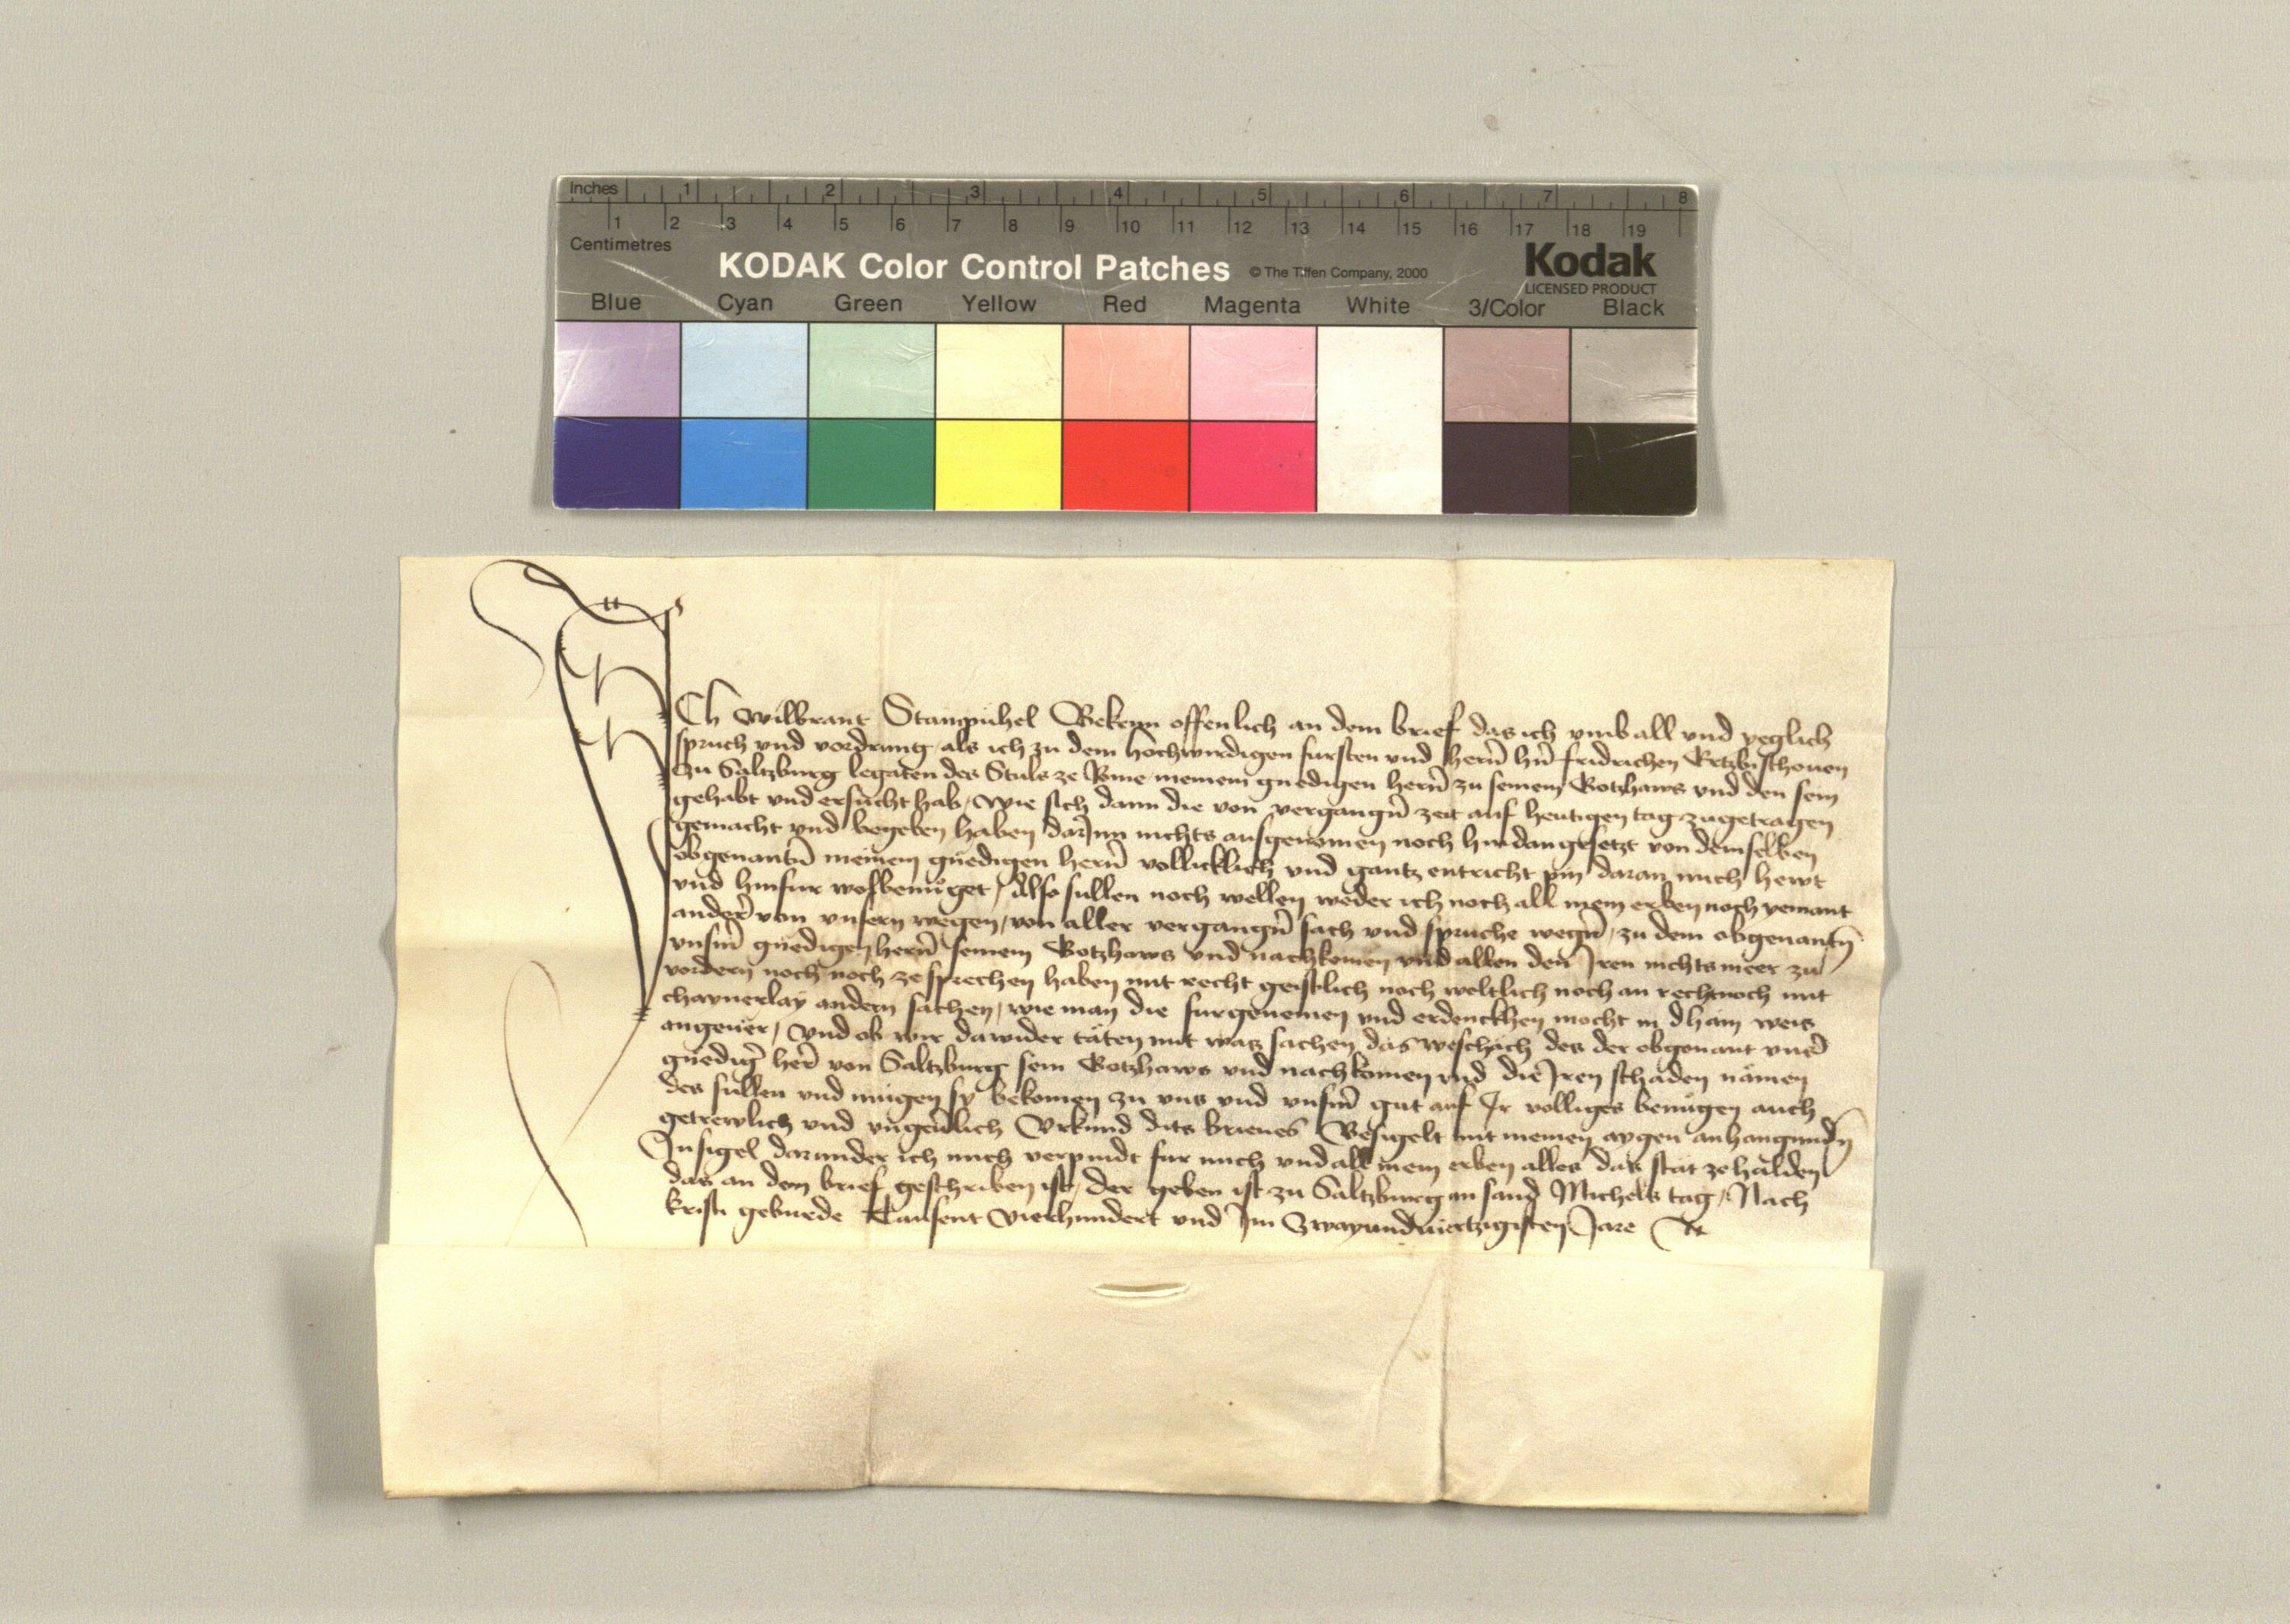 Inches 1 2 3 4 5 6 7 8
1 2 3 4 5 6 7 8 9 10 11 12 13 14 15 16 17 18 19
Centimetres
KODAK Color Control Patches © The Tiffen Company, 2000 Kodak
LICENSED PRODUCT
Blue Cyan Green Yellow Red Magenta White 3/Color Black
ICh Wilbrant Stangpühel Bekenn offenlich an dem brief das ich vmb all vnd yeglich
spruch vnd vordrung als ich zu dem hochwirdigen fursten vnd herrn hrn fridrichen Ertzbischouen
zu Saltzburg legaten des Stuls ze Rome meinem gnedigen herrn zu seinem Gotzhaws vnd den sein
gehabt vnd ersucht hab, wie sich dann die von vergangner zeit auf heutigen tag zugetragen
gemacht vnd begeben haben darInn nichts ausgenomen noch hindangesetzt von demselben
obgenantn meinem gnedigen herrn vollicklich vnd gantz entricht pin daran mich hewt
vnd hinfur wolbenüget, Also sullen noch wellen weder ich noch all mein erben noch yemant
ander von vnsern wegen, von aller vergangner sach vnd spruche wegen, zu dem obgenantn
vnserm gnedigen herrn seinem Gotzhaws vnd nachkomen vnd allen den Iren nichts meer zu
vordern noch noch ze sprechen haben mit recht geistlich noch weltlich noch an recht noch mit
chaynerlay andern sachen, wie man die furgenemen vnd erdenckhen mocht in dhain weis
angeuer, Vnd ob wir dawider täten mit waz sachen das weschäch des der obgenant vnser
gnediger herr von Saltzburg sein Gotzhaws vnd nachkomen vnd die Iren schaden nämen
des sullen vnd mügen sy bekomen zu vns vnd vnserm gut auf Ir volliges benügen auch
getrewlich vnd vngeuerlich Vrkund dits brieues Besigelt mit meinem aygen anhangundn
Insigel darunder ich mich verpindt fur mich vnd all mein erben alles das stät ze halden
das an dem brief geschriben ist, der geben ist zu Saltzburg an sand Michels tag, Nach
kristi geburde Tausent Vierhundert vnd Im Zwayundviertzigisten Jare